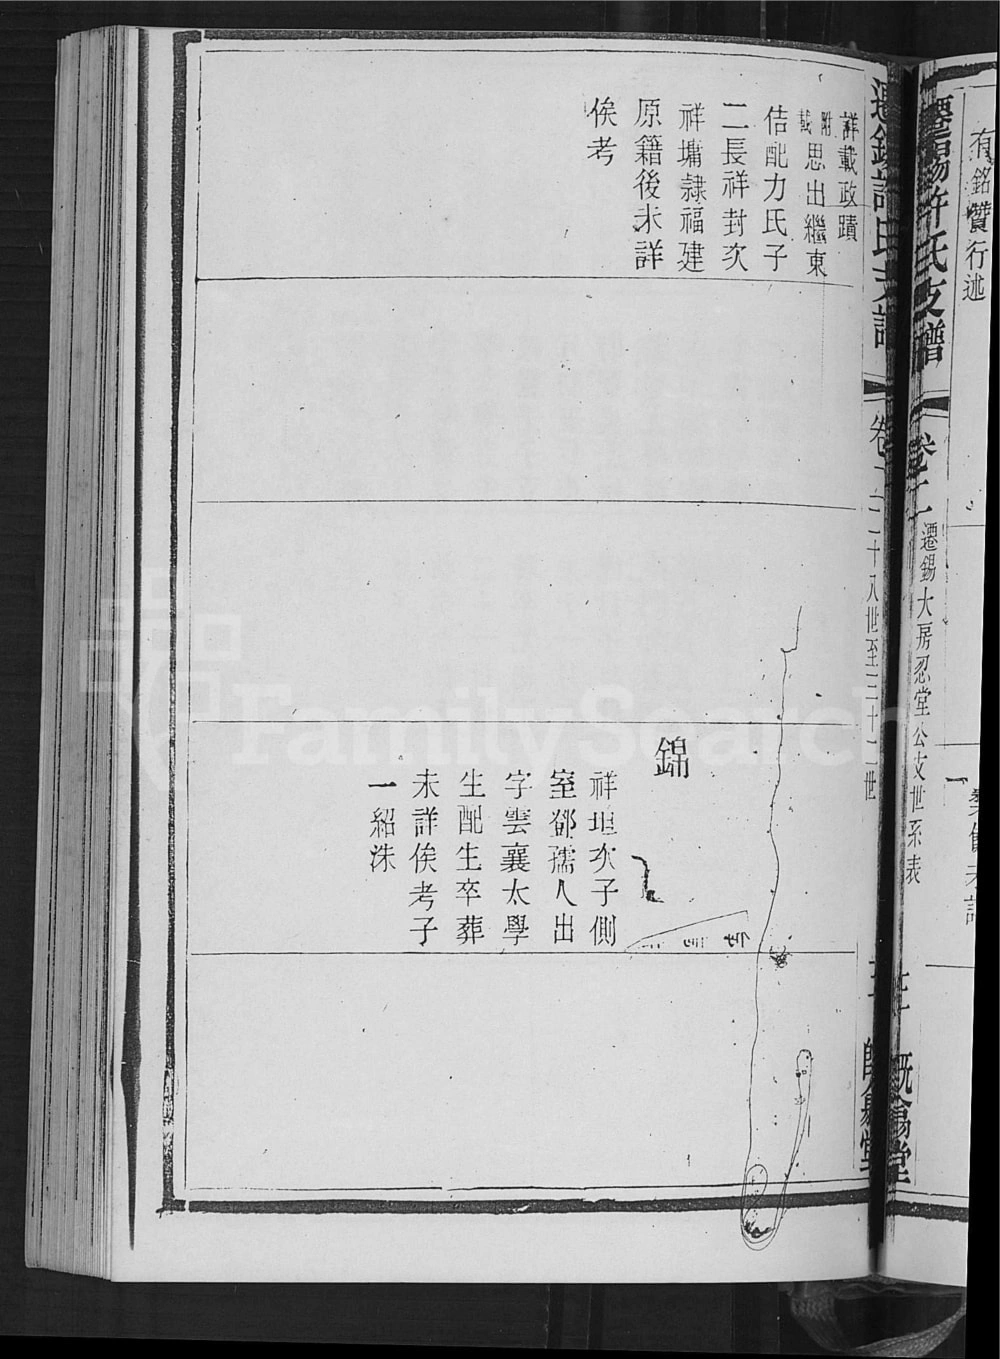 有銘贊行述
遷錫許氏支譜
卷二
遷錫大房忍堂公支世系表
既翕堂
遷錫許氏支譜
卷二
二十八世至三十二世
既翕堂
詳載政蹟
附載
思出繼東
佶配力氏子
二長祥封次
祥墉隷福建
原籍後未詳
俟考
錦
祥垣次子側
室鄧孺人出
字雲襄太學
生配生卒葬
未詳俟考子
一紹洙
FamilySearch